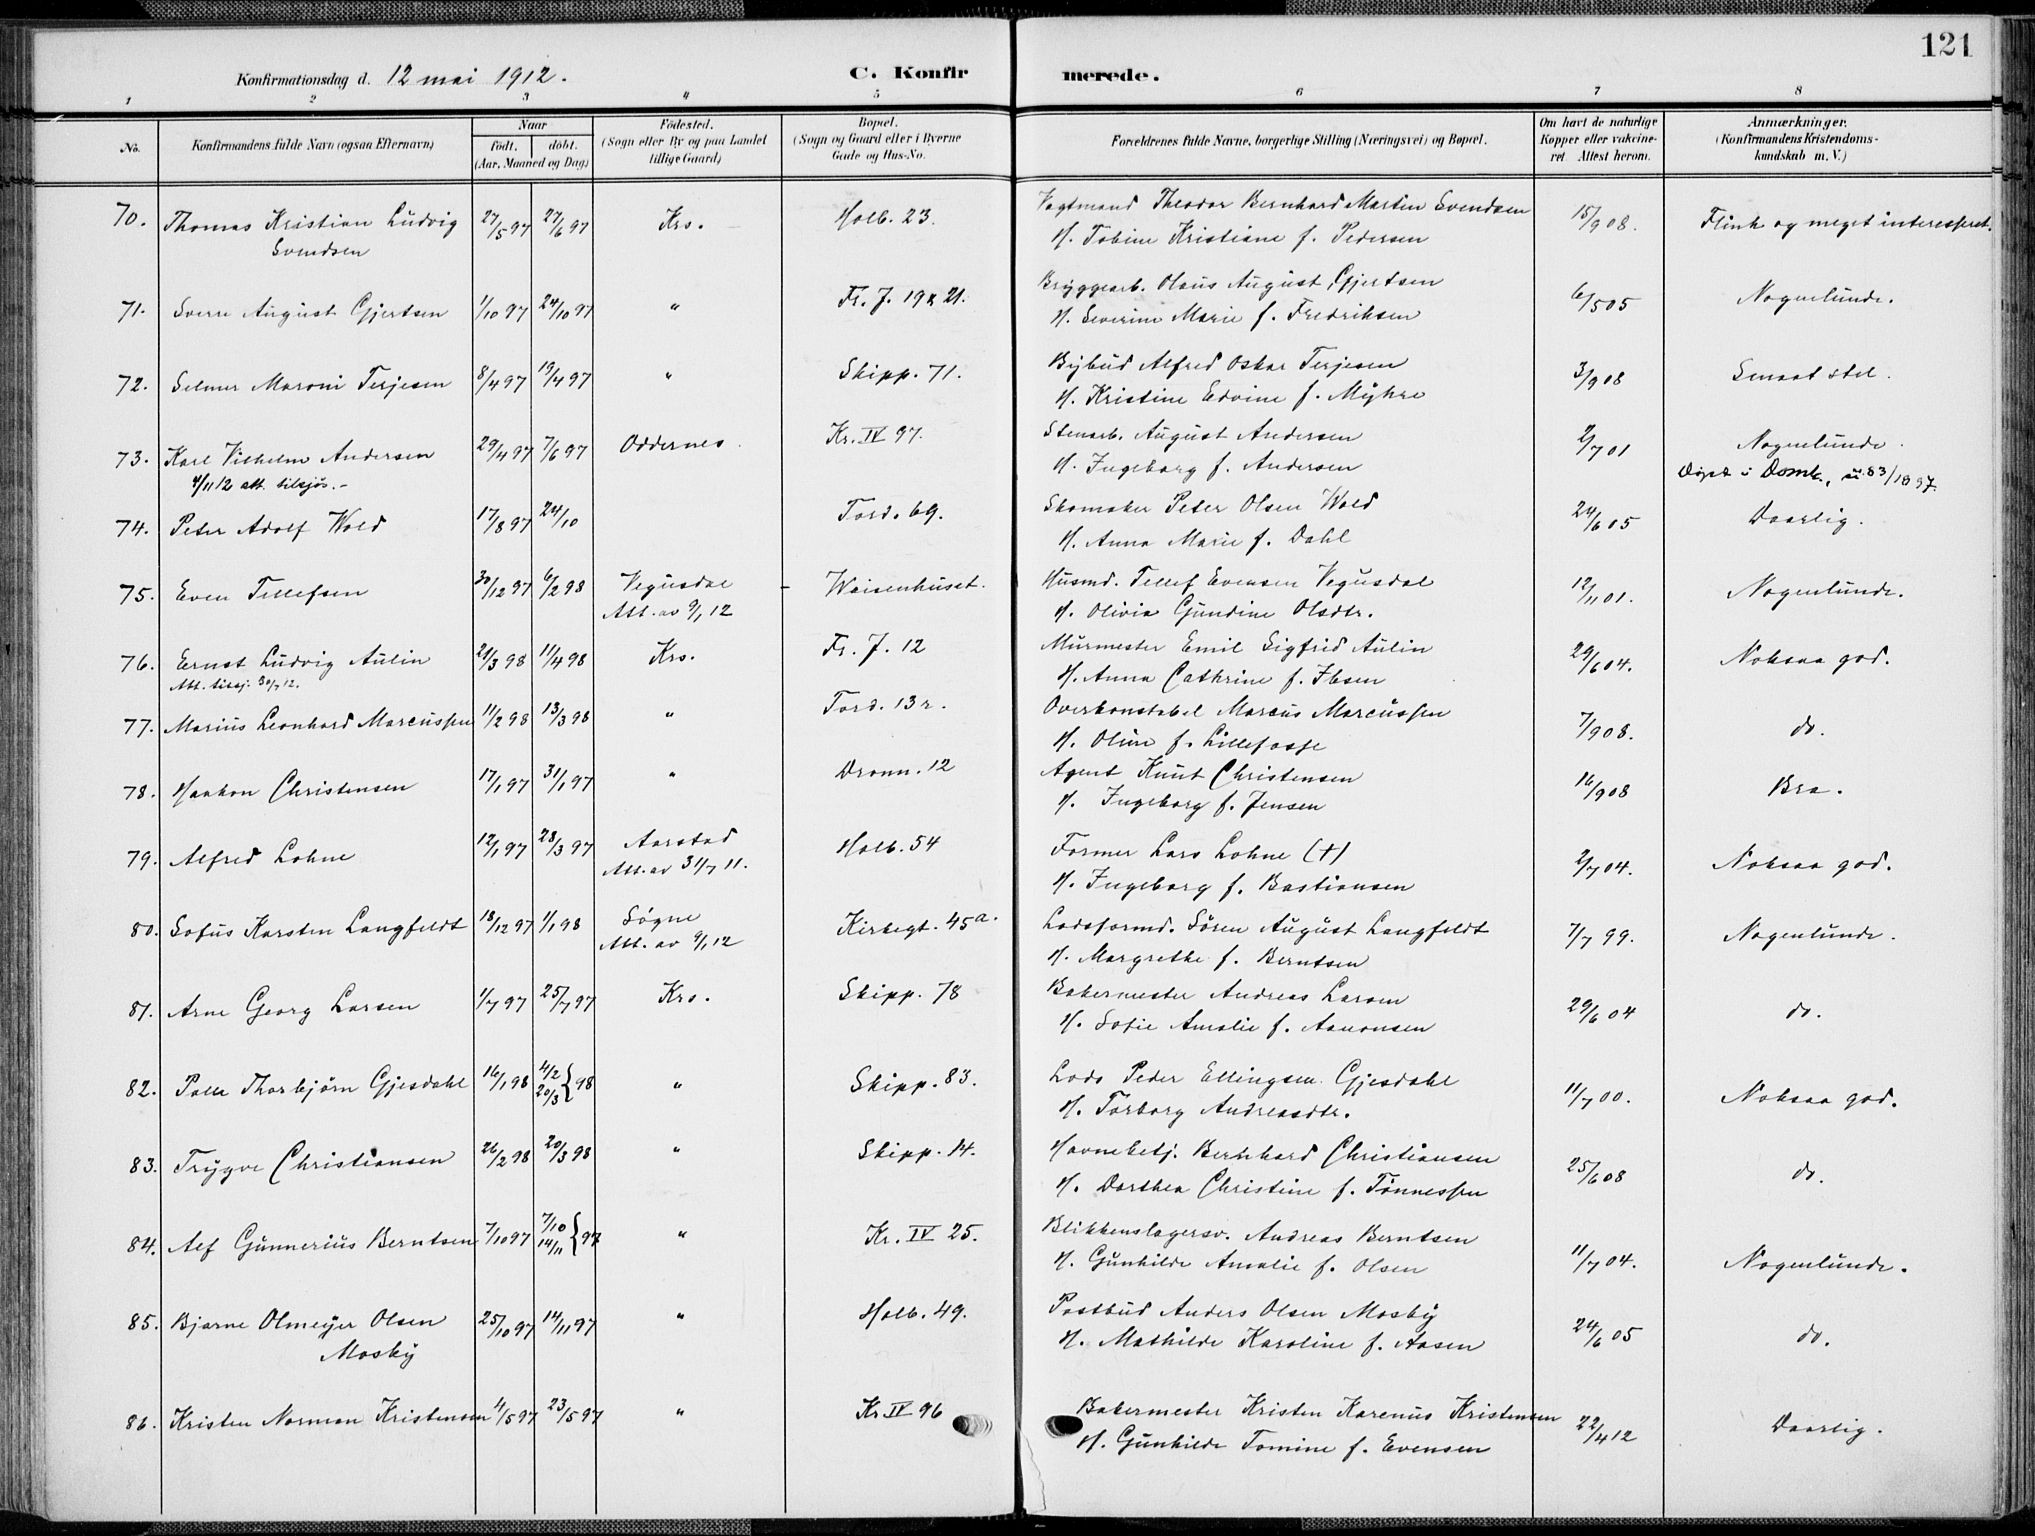 121
Konfirmationsdag d. 12 mai 1912.
C. Konfirmerede.
1 2 3 4 5 6 7 8
No. | Konfirmandens fulde Navn (ogsaa Efternavn) | Naar födt. döbt. (Aar, Maaned og Dag) | Födested. (Sogn eller By og paa Landet tillige Gaard) | Bopæl. (Sogn og Gaard eller i Byerne Gade og Hus-No. | Forældrenes fulde Navne, borgerlige Stilling (Næringsvei) og Bopæl. | Om havt de naturlige Kopper eller vakcineret. Attest herom. | Anmærkninger. (Konfirmandens Kristendomskundskab m. V.)
70. Thomas Kristian Ludvig 27/5 97 27/6 97 Krs. Holb. 23. Vagtmand Theodor Bernhard Martin Svendsen 15/9 08. Flink og meget interesseret.
Svendsen H. Tobine Kristiane f. Pedersen
71. Sverre August Gjertsen 1/10 97 24/10 97 " Fr. J. 19 & 21. Bryggearb. Olaus August Gjertsen 6/5 05 Nogenlunde.
H. Severine Marie f. Fredriksen
72. Selmer Maroni Terjesen 8/4 97 19/4 97 " Skipp. 71. Bybud Alfred Oskar Terjesen 3/9 08 Smaat stel.
H. Kristine Edvine f. Myhre
73. Karl Vilhelm Andersen 29/4 97 7/6 97 Oddernes Kr. IV 97. Stenarb. August Andersen 2/7 01 Nogenlunde.
4/11 12 att. tilsjøs.- H. Ingeborg f. Andersen Døpt i Domk., nr. 83/1897.
74. Peter Adolf Wold 17/8 97 24/10 Tord. 69. Skomaker Peter Olsen Wold 24/6 05 Daarlig.
H. Anna Marie f. Dahl
75. Even Tellefsen 30/12 97 6/2 98 Vegusdal - Waisenhuset. Husmd. Tellef Evensen Vegusdal 12/11 01. Nogenlunde.
Att. av 9/1 12 H. Olivia Gundine Olsdtr.
76. Ernst Ludvig Aulin 21/3 98 11/4 98 Krs. Fr. J. 12 Murmester Emil Sigfrid Aulin 29/6 04. Noksaa god.
Att. tilsj. 30/7 12. H. Anna Cathrine f. Ibsen
77. Marius Leonhard Marcussen 11/2 98 13/3 98 " Tord. 13 Overkonstabel Marcus Marcussen 7/9 08. do.
H. Oline f. Lillefosse
78. Haakon Christensen 17/1 97 31/1 97 " Dronn. 12 Agent Knut Christensen 16/9 08 Bra.
H. Ingeborg f. Jensen
79. Alfred Lohne 12/1 97 28/3 97 Aarstad Holb. 54 Former Lars Lohne (†) 2/7 04. Noksaa god.
Att. av 31/7 11. H. Ingeborg f. Bastiansen
80. Sofus Karsten Langfeldt 18/12 97 1/1 98 Søgne Kirkegt. 45 a. Lodsformd. Sören August Langfeldt 7/7 99. Nogenlunde.
Att. av 9/1 12 H. Margrethe f. Berntsen
81. Arne Georg Larsen 1/7 97 25/7 97 Krs. Skipp. 78 Bakermester Andreas Larsen 29/6 04 do.
H. Sofie Amalie f. Aanonsen
82. Palle Thorbjørn Gjesdahl 16/1 98 4/2 20/3 } 98 " Skipp. 83. Lods Peder Ellingsen Gjesdahl 11/7 00. Noksaa god.
H. Torborg Andreasdtr.
83. Trygve Christiansen 26/2 98 20/3 98 " Skipp. 14. Havnebetj. Bernhard Christiansen 25/6 08 do.
H. Dorthea Christine f. Tønnessen
84. Alf Gunnerius Berntsen 7/10 97 7/10 14/11 } 97 " Kr. IV 25. Blikkenslagersv. Andreas Berntsen 11/7 04. Nogenlunde.
H. Gunhilde Amalie f. Olsen
85. Bjarne Olmeyer Olsen 25/10 97 14/11 97 " Holb. 49. Postbud Anders Olsen Mosby 24/6 05 do.
Mosby H. Mathilde Karoline f. Aasen
86. Kristen Norman Kristensen 4/5 97 23/5 97 " Kr IV 96 Bakermester Kristen Karenus Kristensen 22/4 12 Daarlig.
H. Gunhilde Tomine f. Evensen